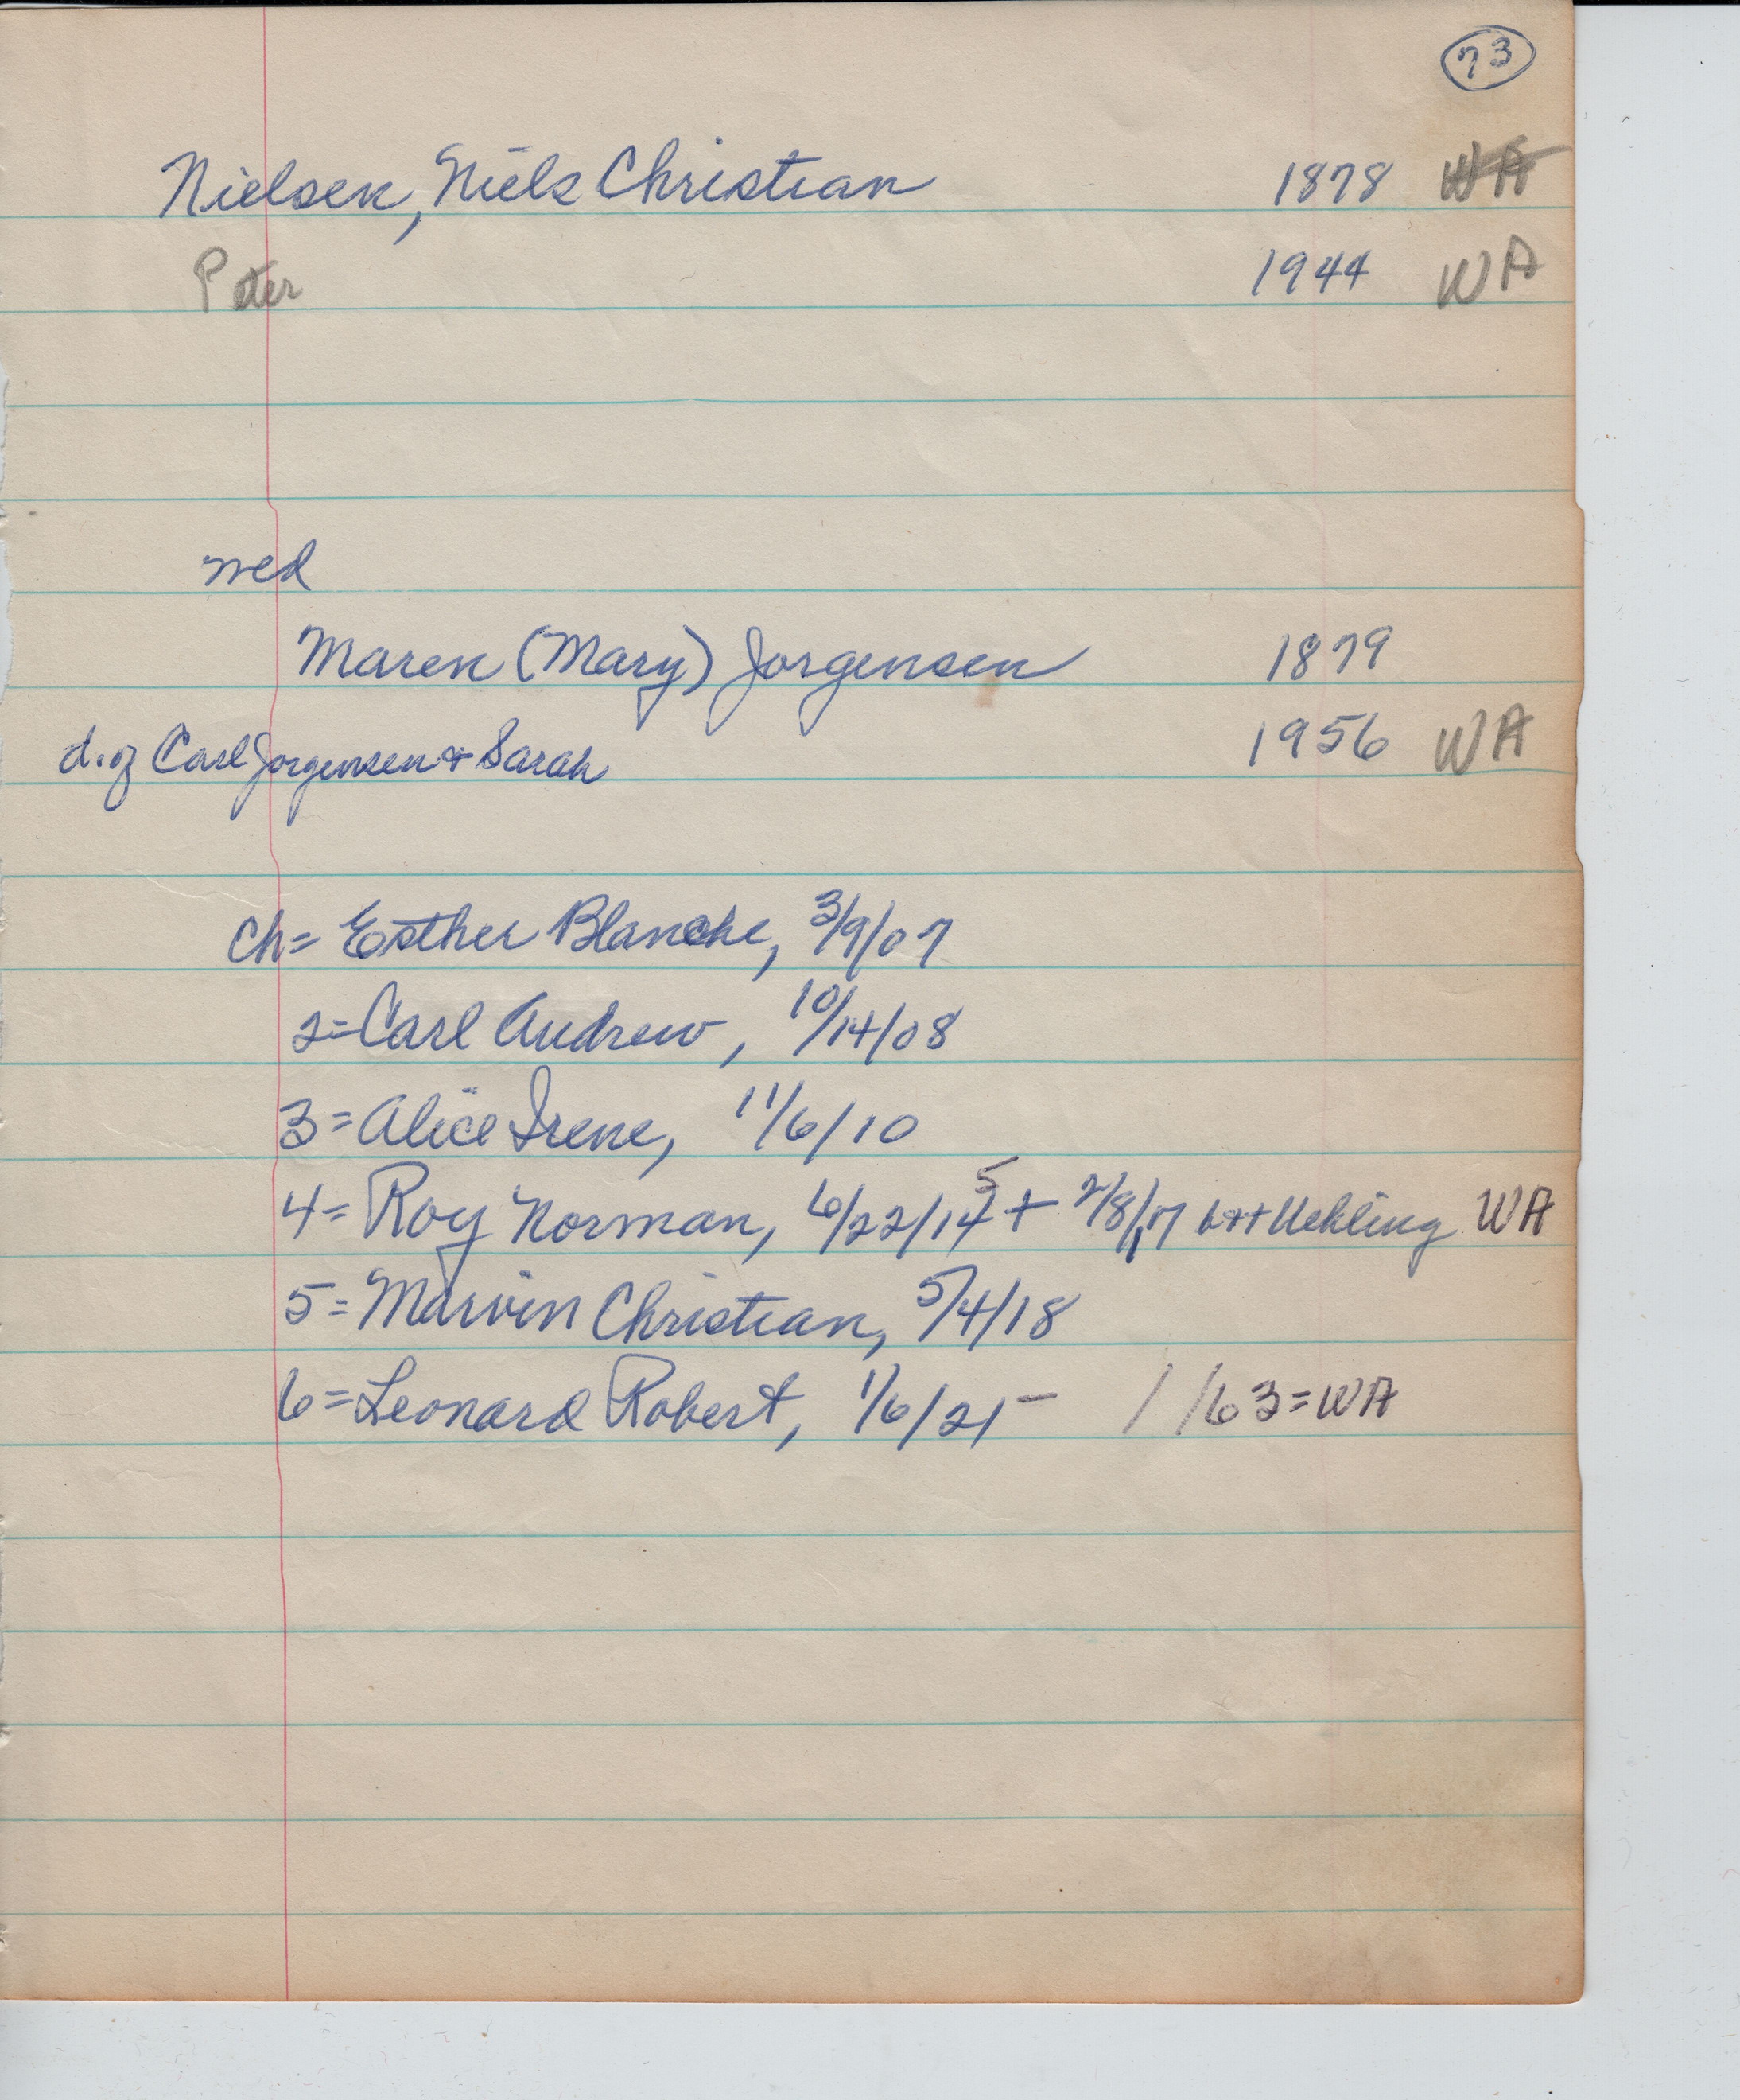 73
Nielsen, Niels Christian 1878 WA
Peter 1944 WA
wed
Maren (Mary) Jorgensen 1879
d. of Carl Jorgensen & Sarah 1956 WA
ch= Esther Blanche, 3/9/07
2= Carl Andrew, 10/14/08
3= Alice Irene, 11/6/10
4= Roy Norman, 6/22/14 5 + 2/8/17 Uehling WA
5= Marvin Christian, 5/4/18
6= Leonard Robert, 1/6/21 - / /63=WA